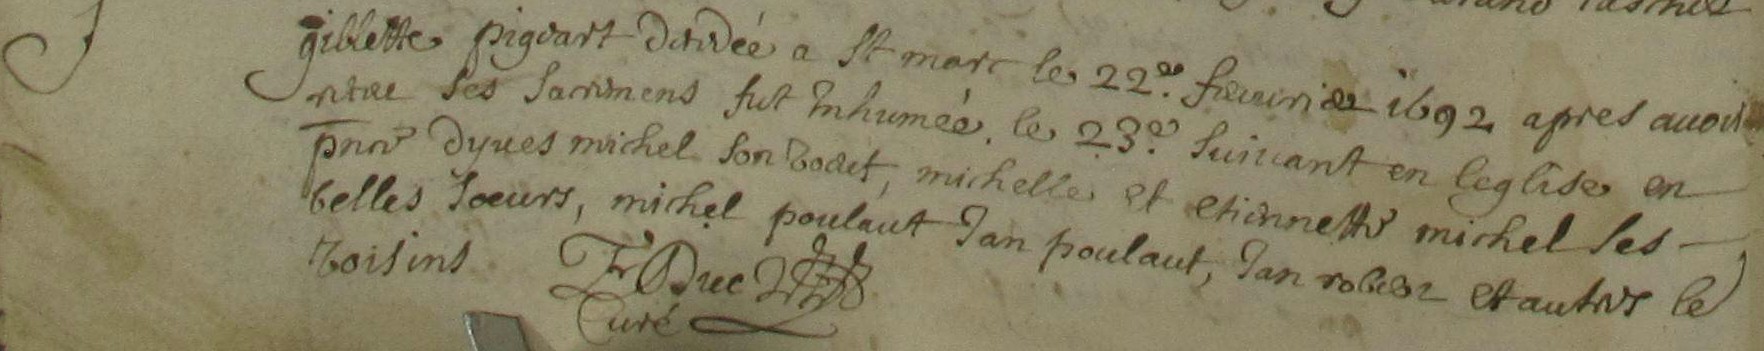 gillette pigeart decedée a St marc le 22e. feuvrier 1692 apres avoir
ses sacremens fut Inhumée. le 23e. suivant en leglise en
pnce dyves michel son veuf, michelle et etiennette michel ses
belles soeurs, michel poulaut Jan poulaut, Jan robert et autres le
voisins
Curé